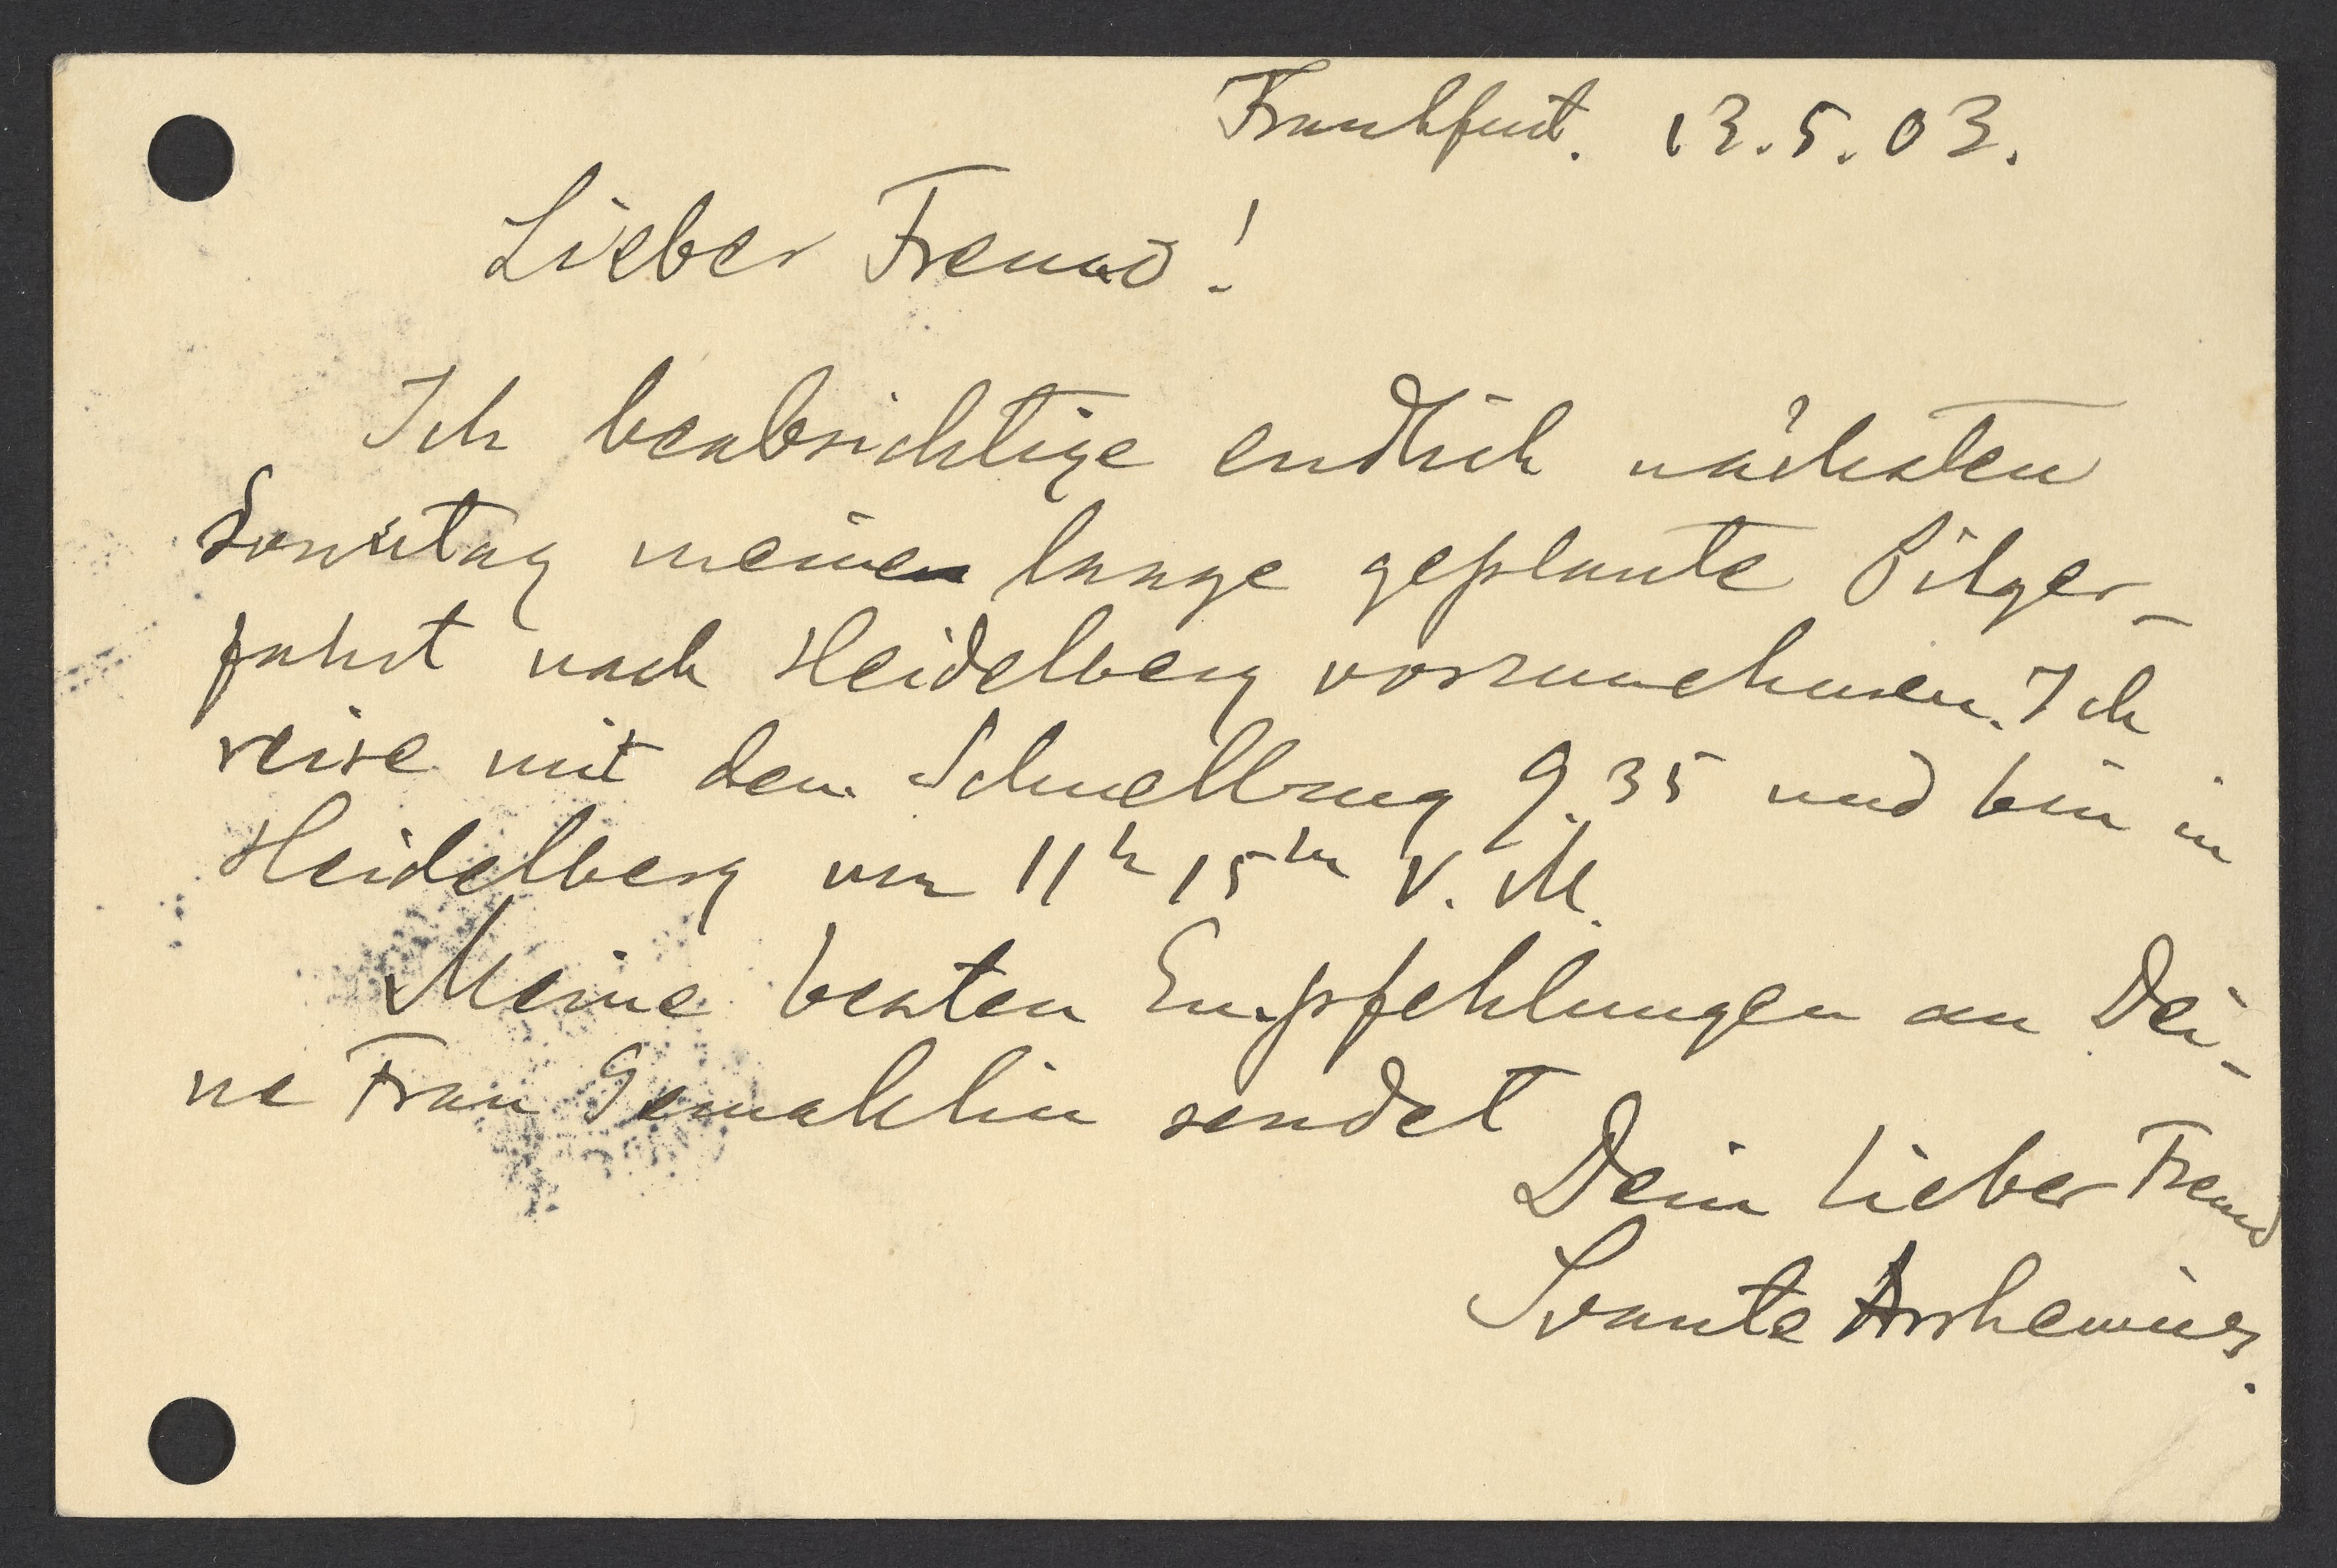 Frankfurt. 13.5.03.
Lieber Freund!
Ich beabsichtige endlich nächsten
Sonntag meine lange geplante Pilger-
fahrt nach Heidelberg vorzunehmen. Ich
reise mit dem Schnellzug 9.35 und bin in
Heidelberg um 11h 15m V. M.
Meine besten Empfehlungen an Dei-
ne Frau Gemahlin sendet
Dein lieber Freund
Svante Arrhenius.